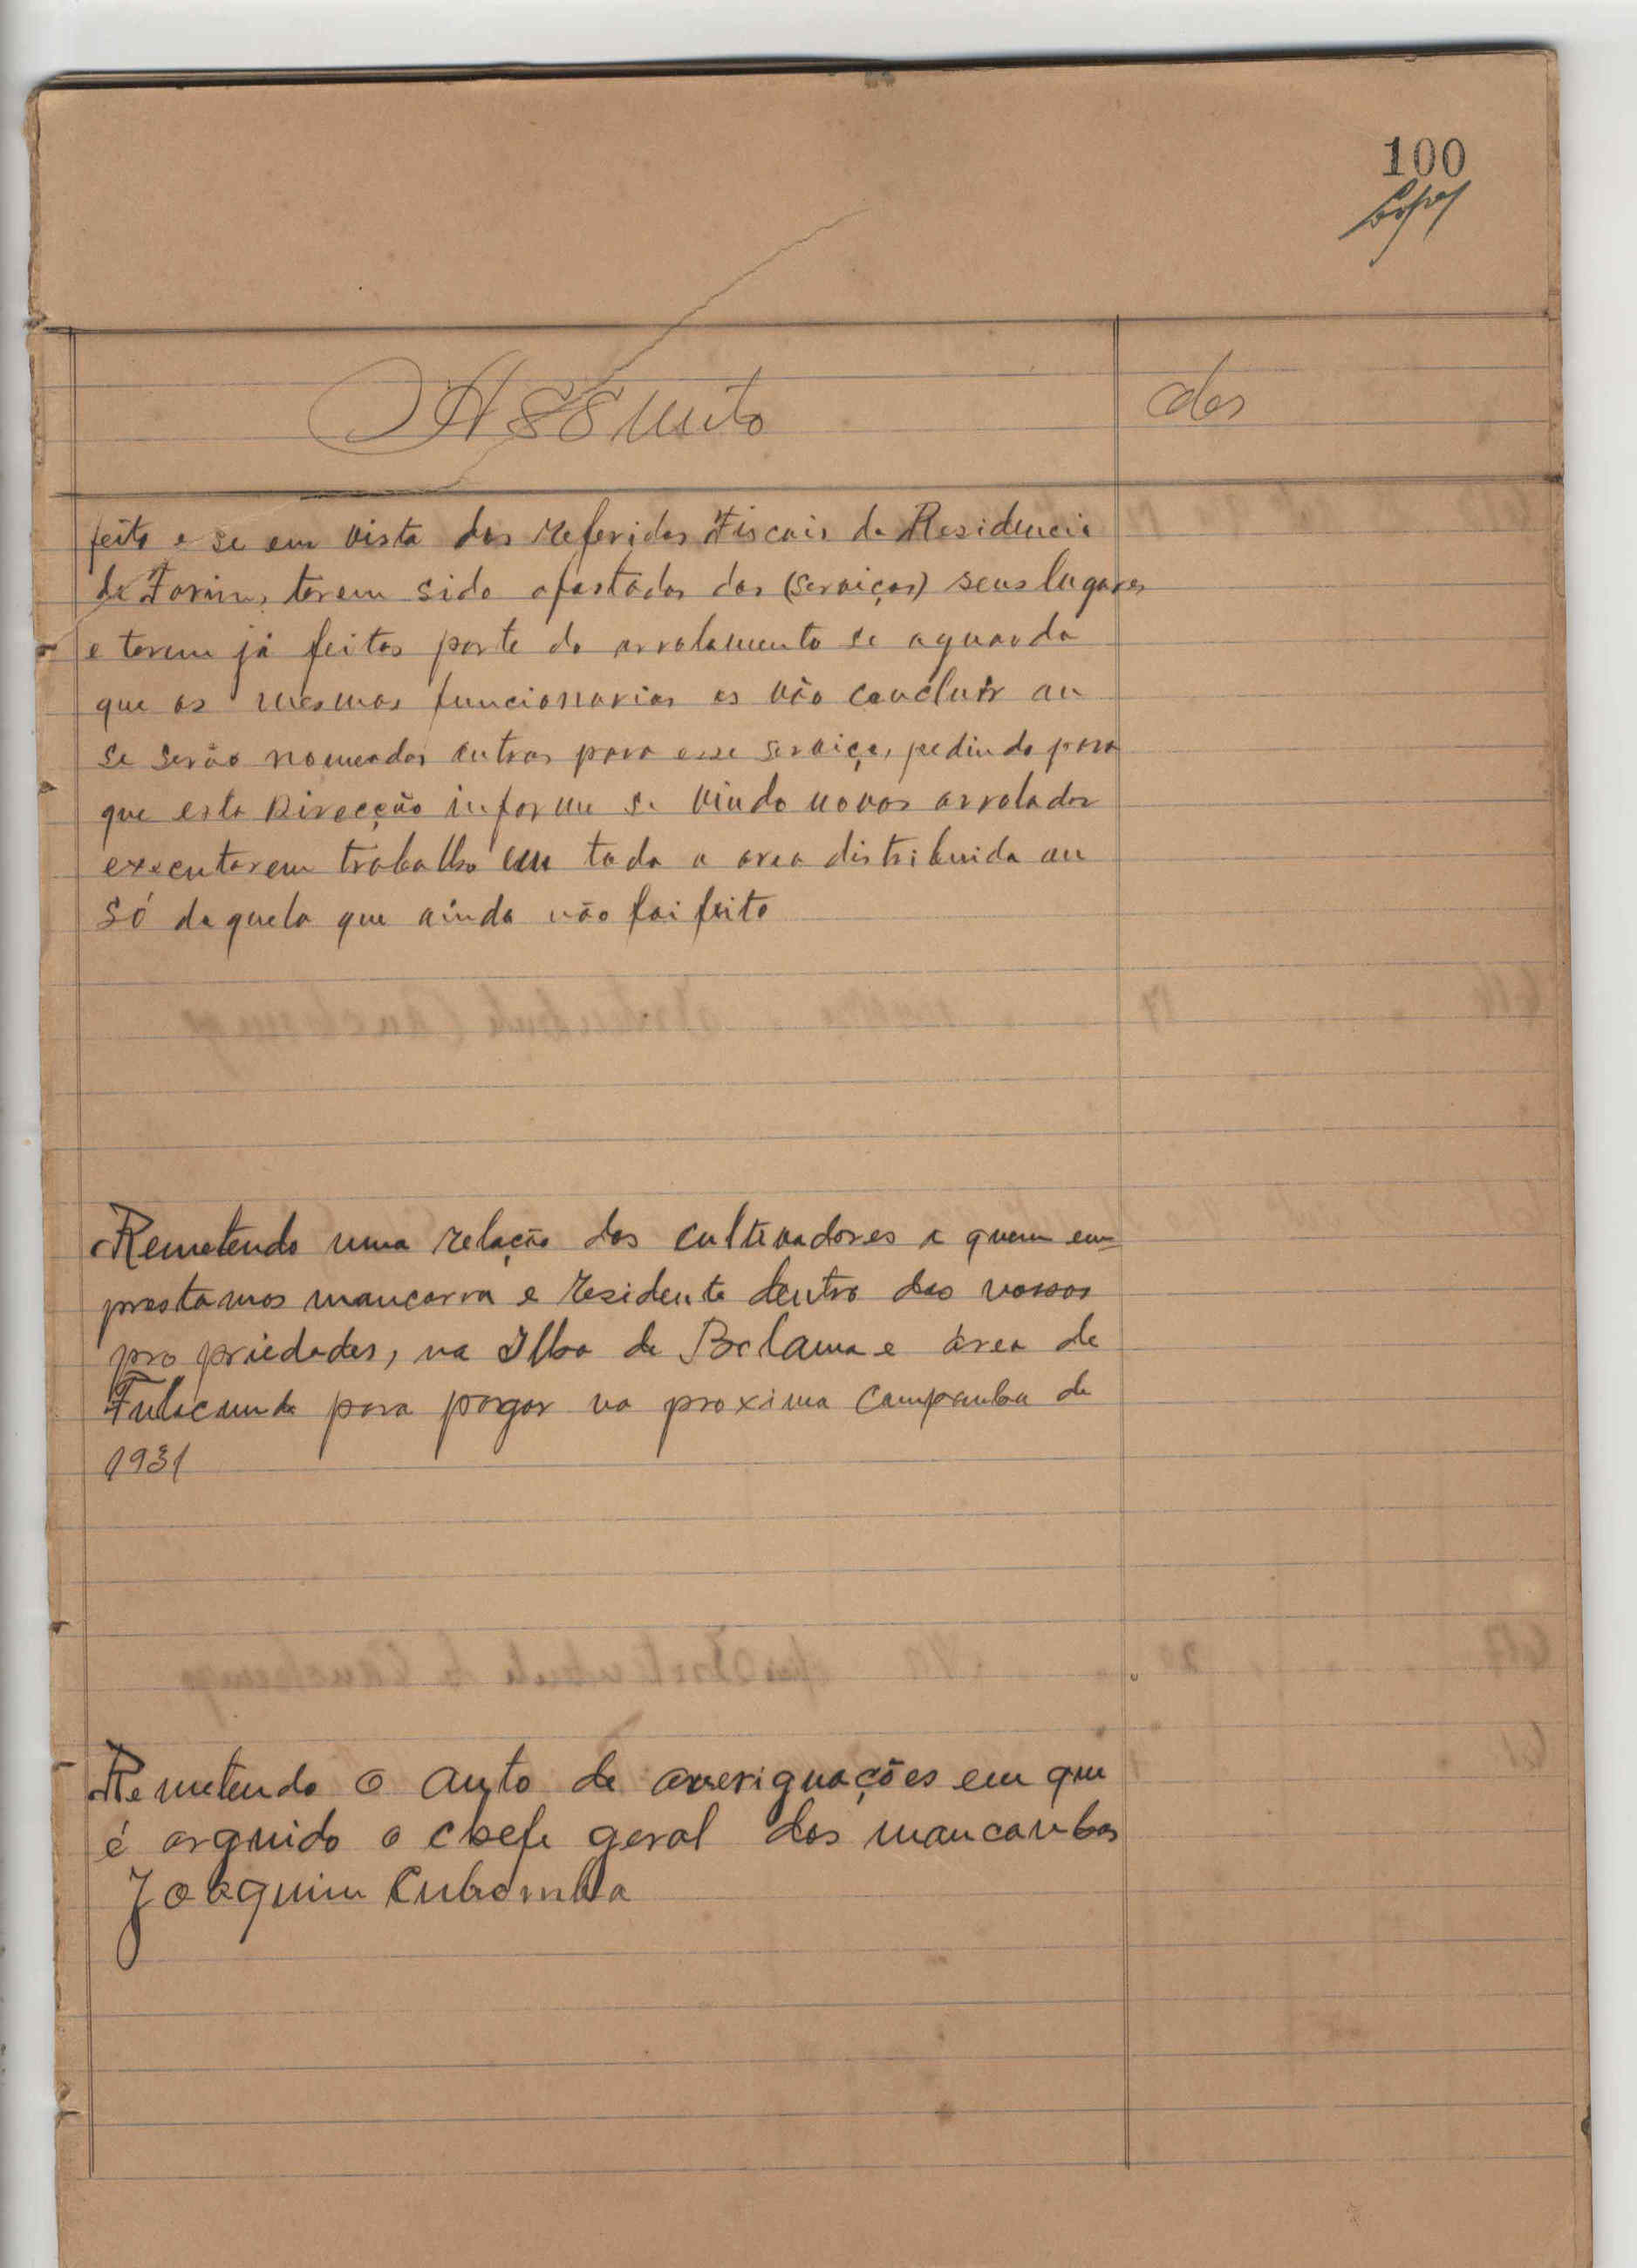 100
Assunto
feito e se em vista dos referidos Fiscais da Residencia
de Farim, terem sido afastados dos (serviços) seus lugares
e terem já feitos parte do arrolamento se aguarda
que os mesmos funcionarios os vão concluir ou
se serão nomeados outros para esse serviço, pedindo para
que esta Direcção informe se vindo novos arrolador
executarem trabalho em toda a area distribuida ou
só daquela que ainda não foi feito
Remetendo uma relação dos cultivadores a quem em=
prestamos mancarra e residente dentro das vossas
propriedades, na Ilha de Bolama e área de
Fulacunda para pagar na proxima campanha de
1931
Remetendo o auto de averiguações em que
é arguido o chefe geral dos mancanhas
Joaquim